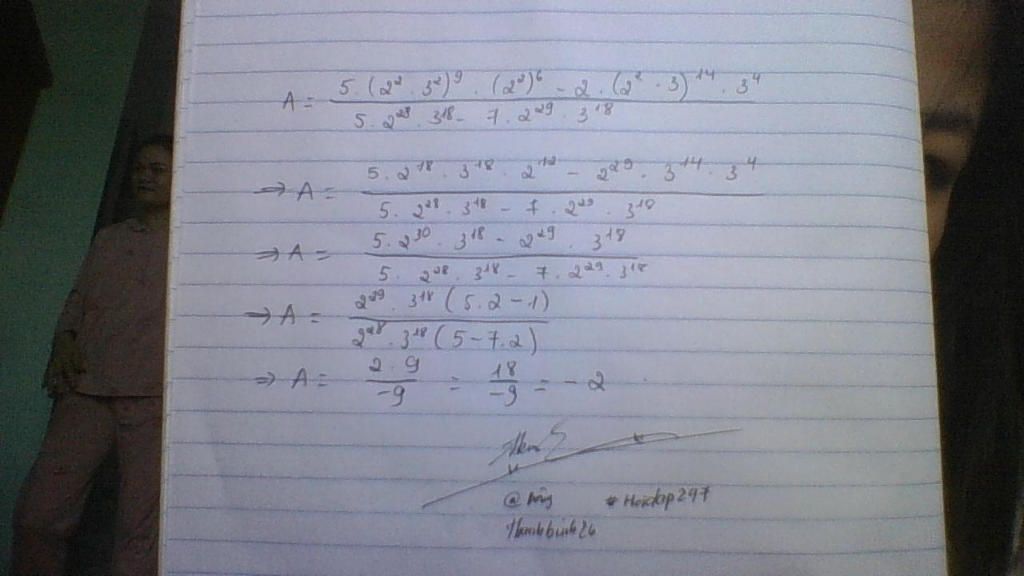 A = \frac{5 \cdot (2^2 \cdot 3^2)^9 \cdot (2^2)^6 - 2 \cdot (2^2 \cdot 3)^{14} \cdot 3^4}{5 \cdot 2^{28} \cdot 3^{18} - 7 \cdot 2^{29} \cdot 3^{18}}
⇒ A = \frac{5 \cdot 2^{18} \cdot 3^{18} \cdot 2^{12} - 2^{29} \cdot 3^{14} \cdot 3^4}{5 \cdot 2^{28} \cdot 3^{18} - 7 \cdot 2^{29} \cdot 3^{18}}
⇒ A = \frac{5 \cdot 2^{30} \cdot 3^{18} - 2^{29} \cdot 3^{18}}{5 \cdot 2^{28} \cdot 3^{18} - 7 \cdot 2^{29} \cdot 3^{18}}
⇒ A = \frac{2^{29} \cdot 3^{18} (5 \cdot 2 - 1)}{2^{28} \cdot 3^{18} (5 - 7 \cdot 2)}
⇒ A = \frac{2 \cdot 9}{-9} = \frac{18}{-9} = -2
#Hoidap297